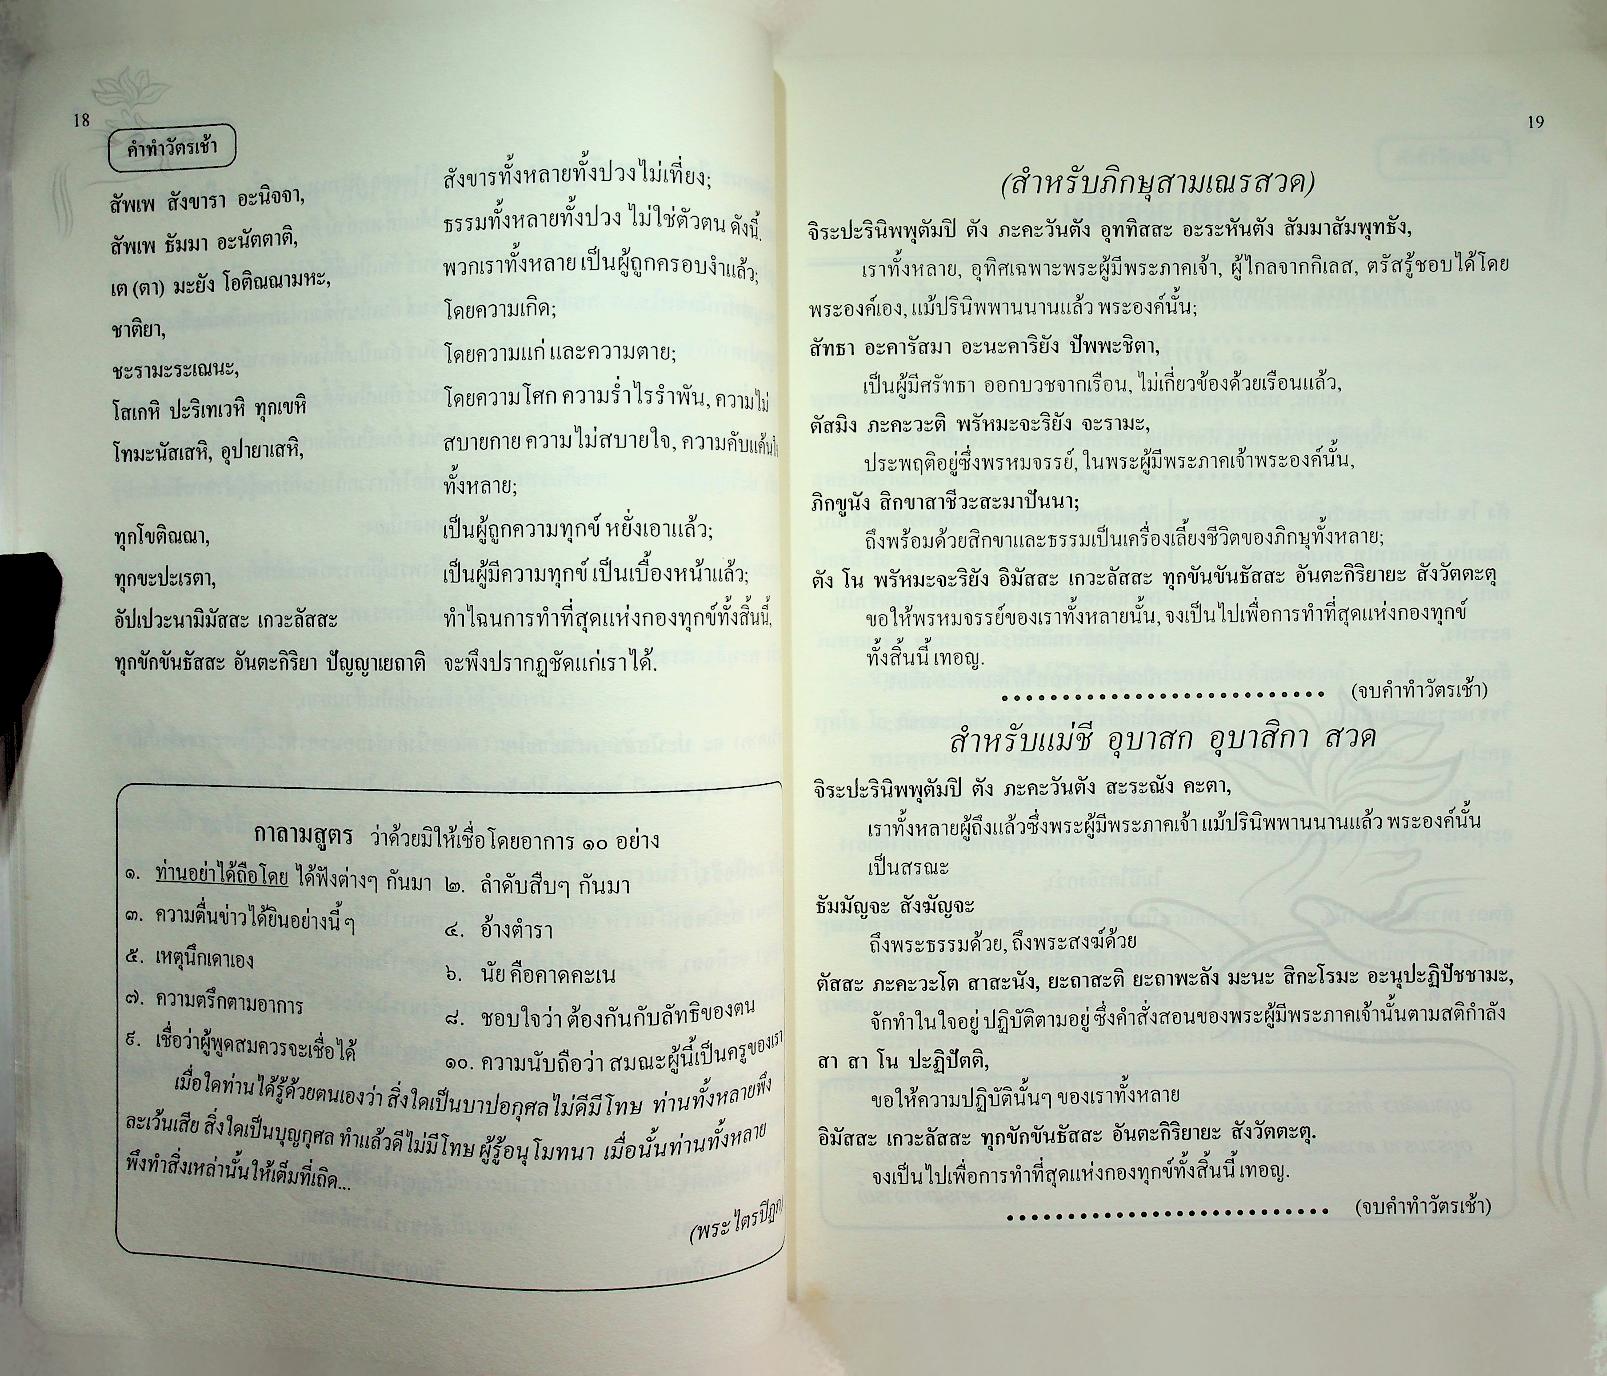 18
คำทำวัตรเช้า
สัพเพ สังขารา อะนิจจา, สังขารทั้งหลายทั้งปวง ไม่เที่ยง;
สัพเพ ธัมมา อะนัตตาติ, ธรรมทั้งหลายทั้งปวง ไม่ใช่ตัวตน ดังนี้.
เต (ตา) มะยัง โอติณณามหะ, พวกเราทั้งหลาย เป็นผู้ถูกครอบงำแล้ว;
ชาติยา, โดยความเกิด;
ชะรามะระเณนะ, โดยความแก่ และความตาย;
โสเกหิ ปะริเทเวหิ ทุกเขหิ โดยความโศก ความร่ำไรรำพัน, ความไม่
โทมะนัสเสหิ, อุปายาเสหิ, สบายกาย ความไม่สบายใจ, ความคับแค้นใจ
ทั้งหลาย;
ทุกโขติณณา, เป็นผู้ถูกความทุกข์ หยั่งเอาแล้ว;
ทุกขะปะเรตา, เป็นผู้มีความทุกข์ เป็นเบื้องหน้าแล้ว;
อัปเปวะนามิมัสสะ เกวะลัสสะ ทำไฉนการทำที่สุดแห่งกองทุกข์ทั้งสิ้นนี้,
ทุกขักขันธัสสะ อันตะกิริยา ปัญญาเยถาติ จะพึงปรากฏชัดแก่เราได้.
กาลามสูตร ว่าด้วยมิให้เชื่อโดยอาการ ๑๐ อย่าง
๑. ท่านอย่าได้ถือโดย ได้ฟังต่างๆ กันมา ๒. ลำดับสืบๆ กันมา
๓. ความตื่นข่าวได้ยินอย่างนี้ ๆ ๔. อ้างตำรา
๕. เหตุนึกเดาเอง ๖. นัย คือคาดคะเน
๗. ความตรึกตามอาการ ๘. ชอบใจว่า ต้องกันกับลัทธิของตน
๙. เชื่อว่าผู้พูดสมควรจะเชื่อได้ ๑๐. ความนับถือว่า สมณะผู้นี้เป็นครูของเรา
เมื่อใดท่านได้รู้ด้วยตนเองว่า สิ่งใดเป็นบาปอกุศล ไม่ดีมีโทษ ท่านทั้งหลายพึง
ละเว้นเสีย สิ่งใดเป็นบุญกุศล ทำแล้วดีไม่มีโทษ ผู้รู้อนุโมทนา เมื่อนั้นท่านทั้งหลาย
พึงทำสิ่งเหล่านั้นให้เต็มที่เถิด...
(พระไตรปิฎก)
19
(สำหรับภิกษุสามเณรสวด)
จิระปะรินิพพุตัมปิ ตัง ภะคะวันตัง อุททิสสะ อะระหันตัง สัมมาสัมพุทธัง,
เราทั้งหลาย, อุทิศเฉพาะพระผู้มีพระภาคเจ้า, ผู้ไกลจากกิเลส, ตรัสรู้ชอบได้โดย
พระองค์เอง, แม้ปรินิพพานนานแล้ว พระองค์นั้น;
สัทธา อะคารัสมา อะนะคาริยัง ปัพพะชิตา,
เป็นผู้มีศรัทธา ออกบวชจากเรือน, ไม่เกี่ยวข้องด้วยเรือนแล้ว,
ตัสมิง ภะคะวะติ พรัหมะจะริยัง จะรามะ,
ประพฤติอยู่ซึ่งพรหมจรรย์, ในพระผู้มีพระภาคเจ้าพระองค์นั้น,
ภิกขูนัง สิกขาสาชีวะสะมาปันนา;
ถึงพร้อมด้วยสิกขาและธรรมเป็นเครื่องเลี้ยงชีวิตของภิกษุทั้งหลาย;
ตัง โน พรัหมะจะริยัง อิมัสสะ เกวะลัสสะ ทุกขันขันธัสสะ อันตะกิริยายะ สังวัตตะตุ
ขอให้พรหมจรรย์ของเราทั้งหลายนั้น, จงเป็นไปเพื่อการทำที่สุดแห่งกองทุกข์
ทั้งสิ้นนี้ เทอญ.
........................... (จบคำทำวัตรเช้า)
สำหรับแม่ชี อุบาสก อุบาสิกา สวด
จิระปะรินิพพุตัมปิ ตัง ภะคะวันตัง สะระณัง คะตา,
เราทั้งหลายผู้ถึงแล้วซึ่งพระผู้มีพระภาคเจ้า แม้ปรินิพพานนานแล้ว พระองค์นั้น
เป็นสรณะ
ธัมมัญจะ สังฆัญจะ
ถึงพระธรรมด้วย, ถึงพระสงฆ์ด้วย
ตัสสะ ภะคะวะโต สาสะนัง, ยะถาสะติ ยะถาพะลัง มะนะ สิกะโรมะ อะนุปะฏิปัชชามะ,
จักทำในใจอยู่ ปฏิบัติตามอยู่ ซึ่งคำสั่งสอนของพระผู้มีพระภาคเจ้านั้นตามสติกำลัง
สา สา โน ปะฏิปัตติ,
ขอให้ความปฏิบัตินั้นๆ ของเราทั้งหลาย
อิมัสสะ เกวะลัสสะ ทุกขักขันธัสสะ อันตะกิริยายะ สังวัตตะตุ.
จงเป็นไปเพื่อการทำที่สุดแห่งกองทุกข์ทั้งสิ้นนี้ เทอญ.
........................... (จบคำทำวัตรเช้า)